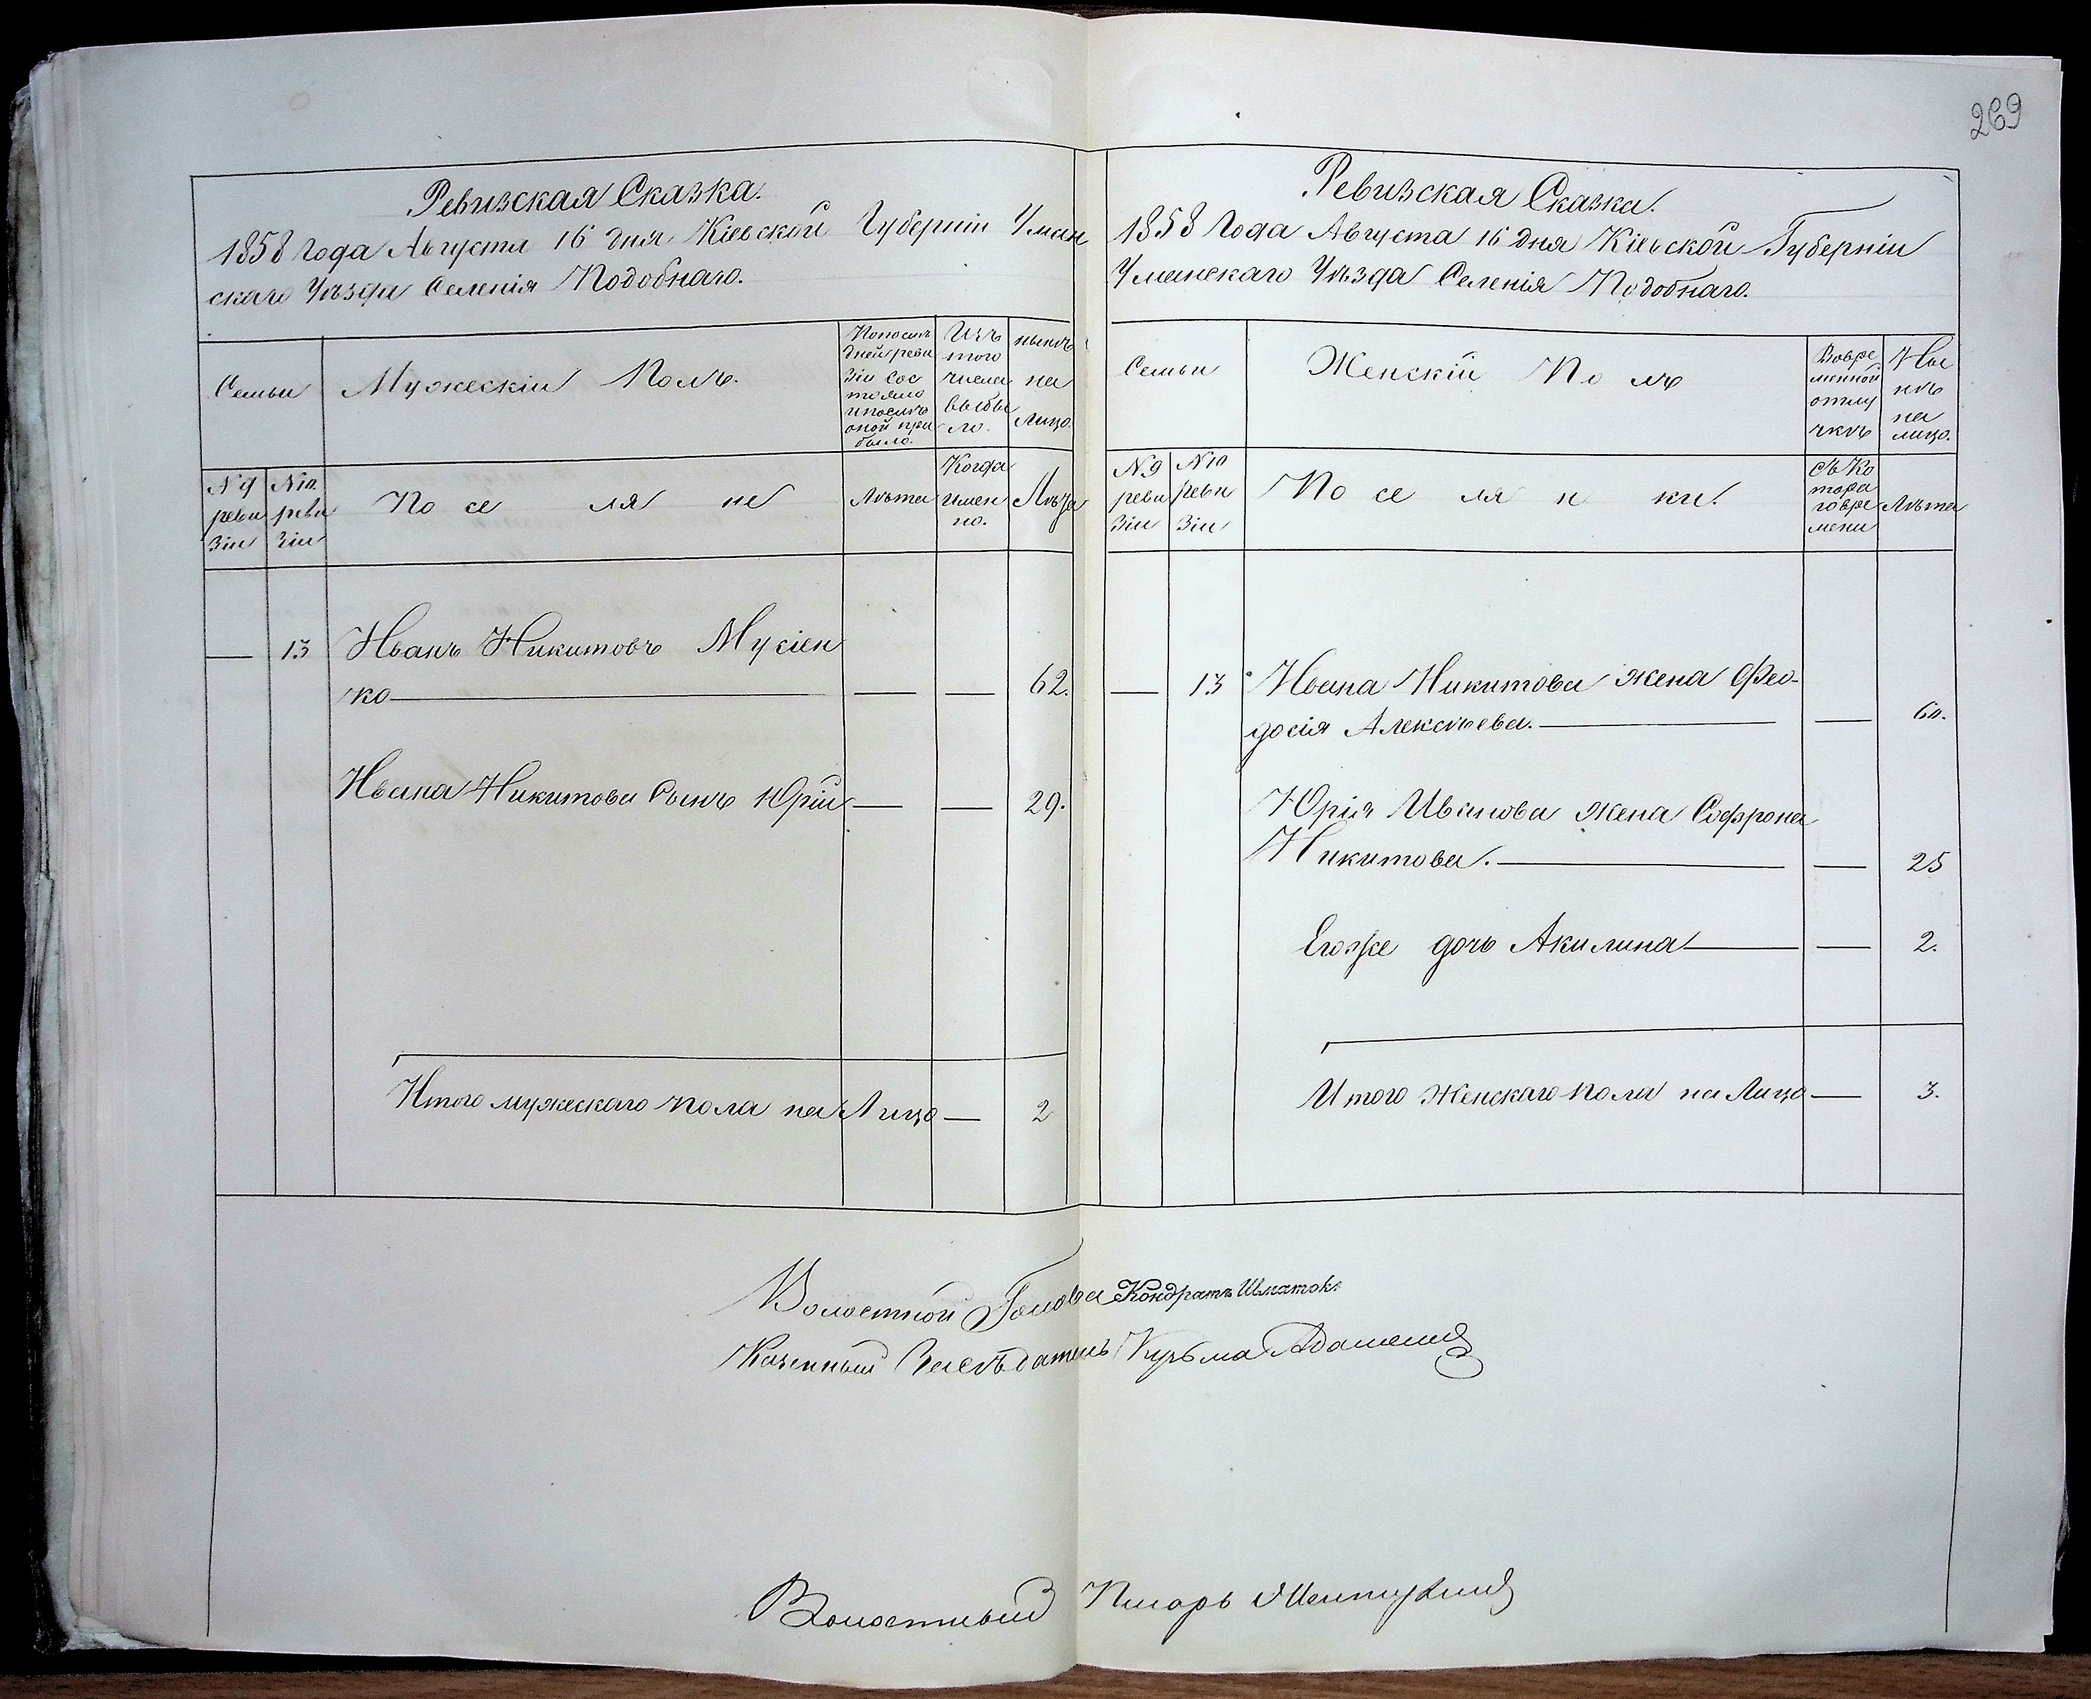 269
Ревизская Сказка.
1858 Года Августа 16 дня Кіевской Губерніи Уман
скаго Уѣзда Селенія Подобнаго.
Семьи
Мужескій Полъ.
Попослѣ
дней реви
зіи сос
тояло
ипослѣ
оной при
было.
Изъ
того
числа
выбы
ло.
нынѣ
на
лицо.
№ 9
реви
зіи
№ 10.
реви
зіи
По се ля не
Лѣта
Когда
имен
но.
Лѣта
— 13 Иванъ Никитовъ Мусіен
ко — — — 62.
Ивана Никитова Сынъ Юрій — — 29.
Итого мужескаго пола на Лицо — 2
Ревизская Сказка.
1858 Года Августа 16 дня Кіевской Губерніи
Уманскаго Уѣзда Селенія Подобнаго.
Семьи
Женскій По лъ
Вовре
менной
отлу
чкѣ
Ны
нѣ
на
лицо.
№ 9
реви
зіи
№ 10
реви
зіи
По се ля н ки.
Съ Ко
тора
говре
мени
Лѣта
— 13 Ивана Никитова жена Фео-
досія Алексѣева. — — 60.
Юрія Иванова жена Софрона
Никитова. — — 25
Егоже дочь Акилина — — 2.
Итого Женскаго пола на Лицо — 3.
Волостной Голова Кондратъ Шматок.
Казенный Засѣдатель Кузьма
Волостный Писарь